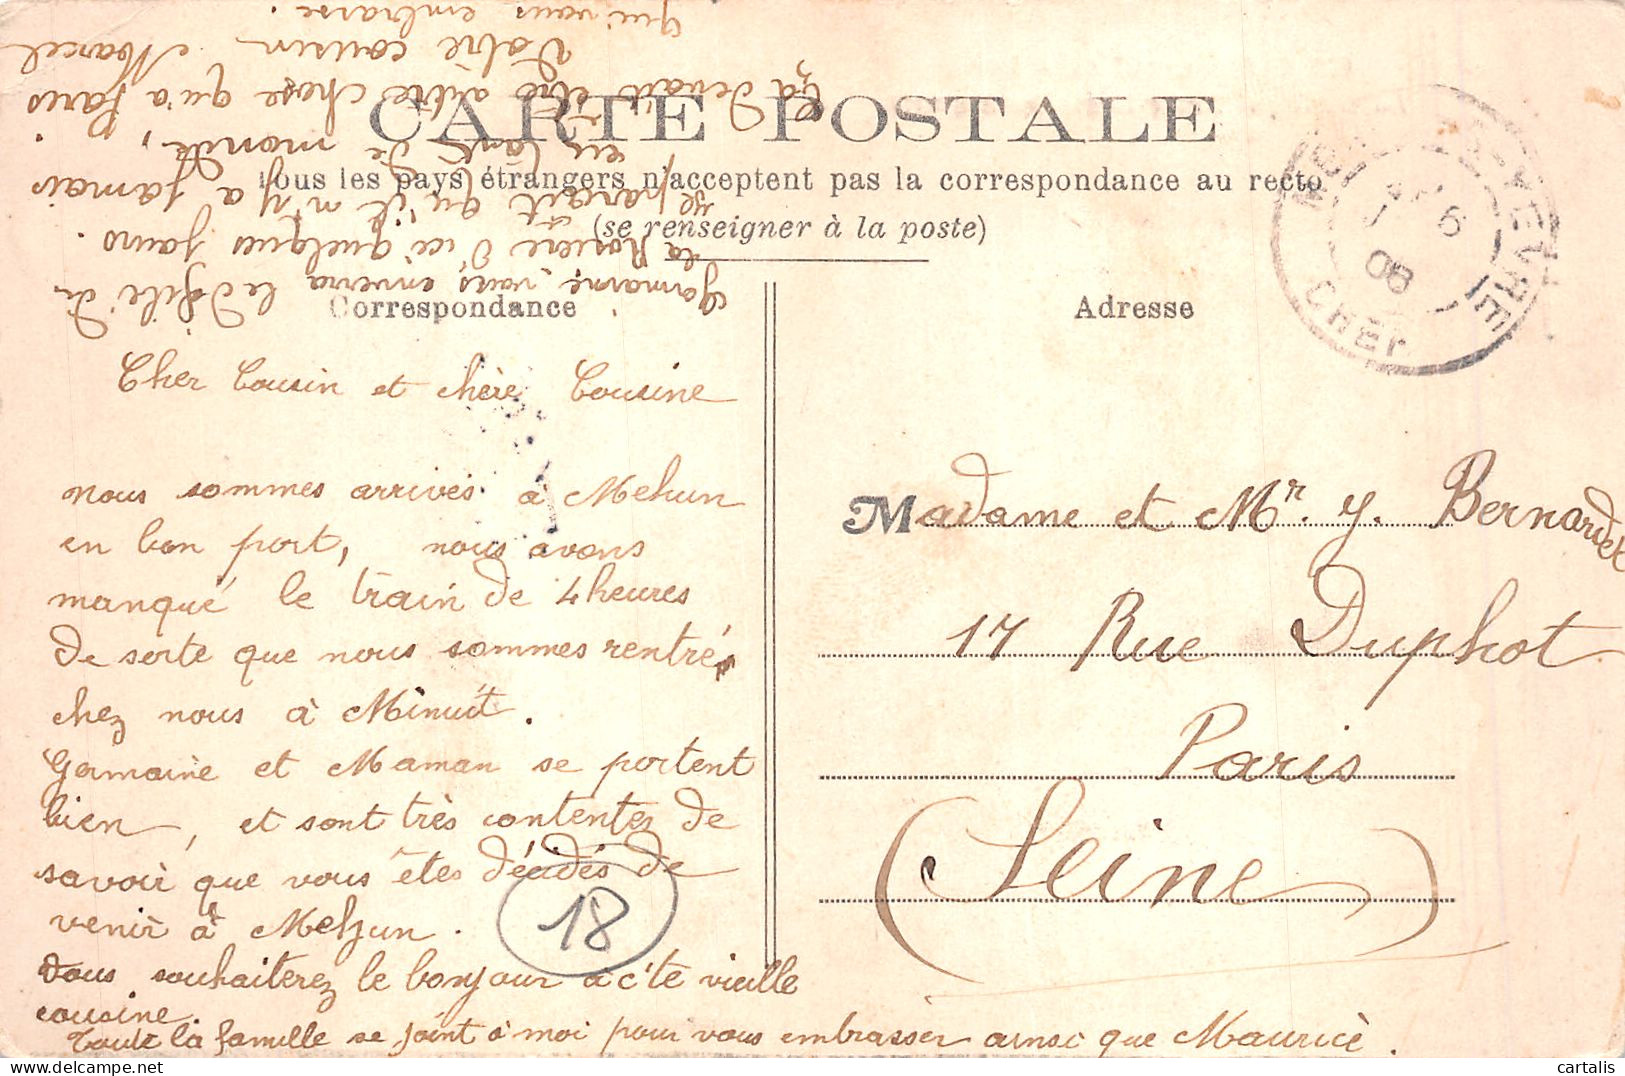 CARTE POSTALE
Tous les pays étrangers n'acceptent pas la correspondance au recto
(se renseigner à la poste)
Correspondance
Adresse
Cher Cousin et chère Cousine
nous sommes arrivés à Mehun
en bon port, nous avons
manqué le train de 4 heures
de sorte que nous sommes rentrés
chez nous à Minuit.
Germaine et Maman se portent
bien, et sont très contentes de
savoir que vous êtes décidés de
venir à Mehun.
Vous souhaiterez le bonjour à c'te vieille
cousine.
Toute la famille se joint à moi pour vous embrasser ainsi que Maurice.
Germaine vous enverra le défilé de
la Rosière d'ici quelques jours.
Il paraît qu'il n'y a jamais
eu tant de monde,
ça devait être autre chose qu'à Paris
Votre cousin Marcel
qui vous embrasse.
Madame et Mr. J. Bernardet
17 Rue Duphot
Paris
(Seine)
18
YEVRE
CHER
08
cartalis